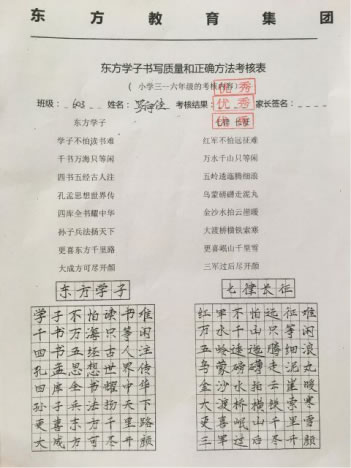 东方教育集团
东方学子书写质量和正确方法考核表
（小学三一六年级的考核内容）
班级：603 姓名： 考核结果： 家长签名：
优秀
优秀
东方学子
七律 长征
学子不怕读书难
红军不怕远征难
千书万海只等闲
万水千山只等闲
四书五经古人注
五岭逶迤腾细浪
孔孟思想世界传
乌蒙磅礴走泥丸
四库全书耀中华
金沙水拍云崖暖
孙子兵法扬天下
大渡桥横铁索寒
更喜东方千里路
更喜岷山千里雪
大成方可尽开颜
三军过后尽开颜
东方学子
七律长征
学子不怕读书难
千书万海只等闲
四书五经古人注
孔孟思想世界传
四库全书耀中华
孙子兵法扬天下
更喜东方千里路
大成方可尽开颜
红军不怕远征难
万水千山只等闲
五岭逶迤腾细浪
乌蒙磅礴走泥丸
金沙水拍云崖暖
大渡桥横铁索寒
更喜岷山千里雪
三军过后尽开颜